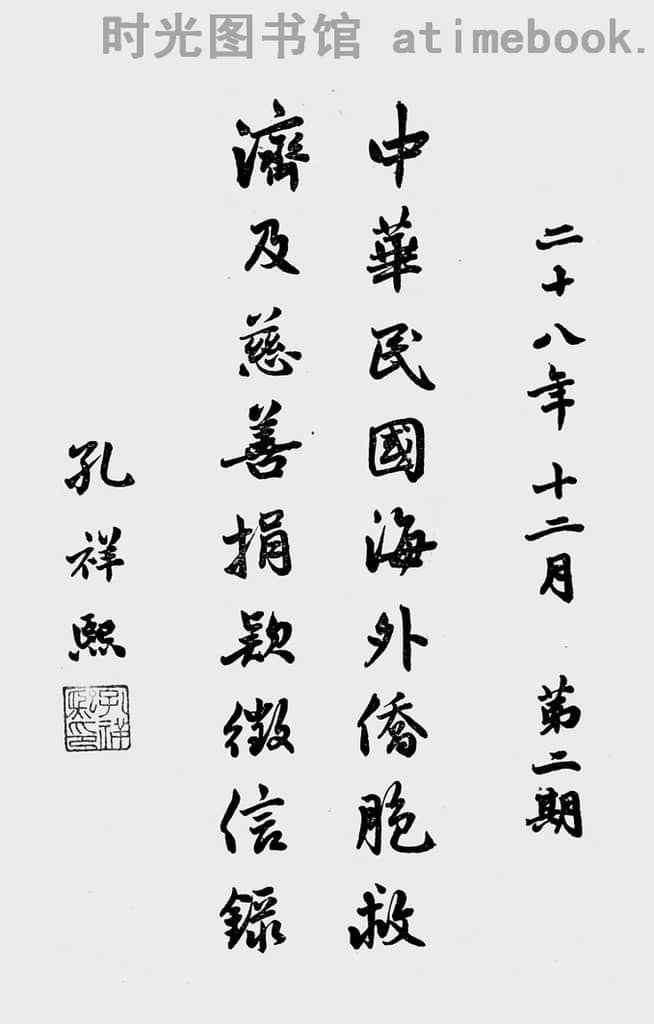 时光图书馆 atimebook.
二十八年十二月 第二期
中華民國海外僑胞救
濟及慈善捐款徵信錄
孔祥熙
孔祥熙印